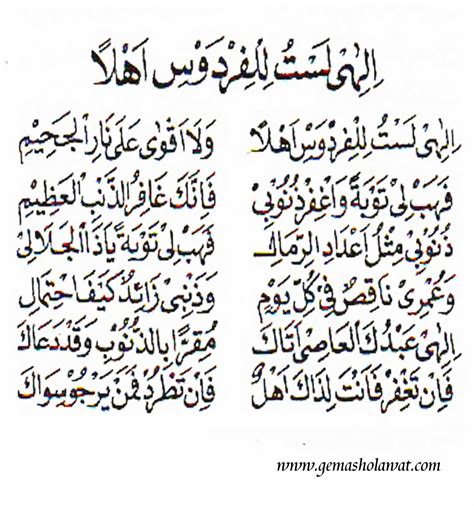 اِلٰهِىْ لَسْتُ لِلْفِرْدَوْسِ اَهْلًا
اِلٰهِىْ لَسْتُ لِلْفِرْدَوْسِ اَهْلًا وَلَا اَقْوٰى عَلٰى نَارِ الْجَحِيْمِ
فَهَبْ لِىْ تَوْبَةً وَاغْفِرْ ذُنُوْبِىْ فَاِنَّكَ غَافِرُ الذَّنْبِ الْعَظِيْمِ
ذُنُوْبِىْ مِثْلُ اَعْدَادِ الرِّمَالِ فَهَبْ لِىْ تَوْبَةً يَاذَا الْجَلَالِىْ
وَعُمْرِىْ نَاقِصٌ فِىْ كُلِّ يَوْمٍ وَذَنْبِىْ زَائِدٌ كَيْفَ احْتِمَالِىْ
اِلٰهِىْ عَبْدُكَ الْعَاصِىْ اَتَاكَ مُقِرًّا بِالذُّنُوْبِ وَقَدْ دَعَاكَ
فَاِنْ تَغْفِرْ فَاَنْتَ لِذَاكَ اَهْلٌ فَاِنْ تَطْرُدْ فَمَنْ يَرْجُوْ سِوَاكَ
www.gemasholawat.com